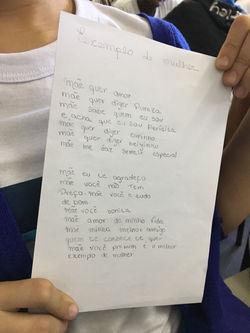 Exemplo de mulher
mãe quer amor
mãe quer dizer Pureza
mãe sabe quem eu sou
e acha que eu sou Perfeita
mãe quer dizer carinho
mãe quer dizer beijinho
mãe me faz sentir especial
mãe eu te agradeço
mãe você não tem
Preço mãe você e tudo
de bom.
mãe você bonita
mãe amor da minha vida
mãe minha melhor amiga
quem te conhece ve que
mãe você primem e o melhor
exemplo de mulher